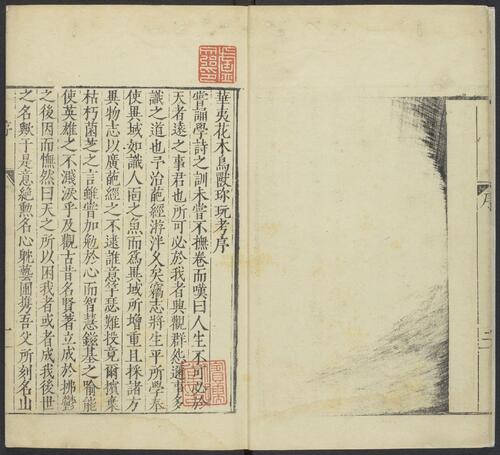 華夷花木鳥獸珍玩考序
嘗誦學詩之訓未嘗不撫卷而嘆曰人生不可必於
天者遠之事君也所可必於我者興觀群怨邇事多
識之道也予治葩經游泮久矣齎志將生平所學奉
使異域如識人面之魚而爲異域所增重且採諸方
異物志以廣葩經之不逮誰意竽瑟難投竟爾擯棄
枯朽菌芝之言雖嘗加勉於心而智慧鎡基之喻能
使英雄之不濺淚乎及觀古昔名賢著立成於拂鬱
之後因而憮然曰天之所以困我者或者成我後世
之名歟于是意絶勲名心躭藝圃携吾父所刻名山
序
一
序